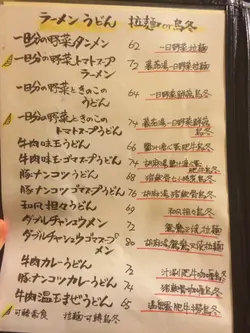 ラーメン うどん 拉麵 or 烏冬
一日分の野菜タンメン 62 一日野菜拉麵
一日分の野菜トマトスープ
ラーメン 72 蕃茄湯一日野菜拉麵
一日分の野菜ときのこの
うどん 64 一日野菜鮮菇烏冬
一日分の野菜ときのこの
トマトスープうどん 74 蕃茄湯一日野菜鮮菇烏冬
牛肉味玉うどん 66 肥牛烏冬
牛肉味玉ゴマスープうどん 74 胡麻湯
豚ナンコツうどん 68 烏冬
豚ナンコツゴマスープうどん 76 胡麻湯 烏冬
和風担々うどん 69 和風担々烏冬
ダブルチャーシュウメン 72 叉燒拉麵
ダブルチャーシュウゴマスープ
メン 80 胡麻湯 叉燒拉麵
牛肉カレーうどん 73 肥牛咖喱烏冬
豚ナンコツカレーうどん 75 咖喱烏冬
牛肉温玉まぜうどん 65 温泉蛋肥牛撈烏冬
可轉素食 拉麵可轉烏冬